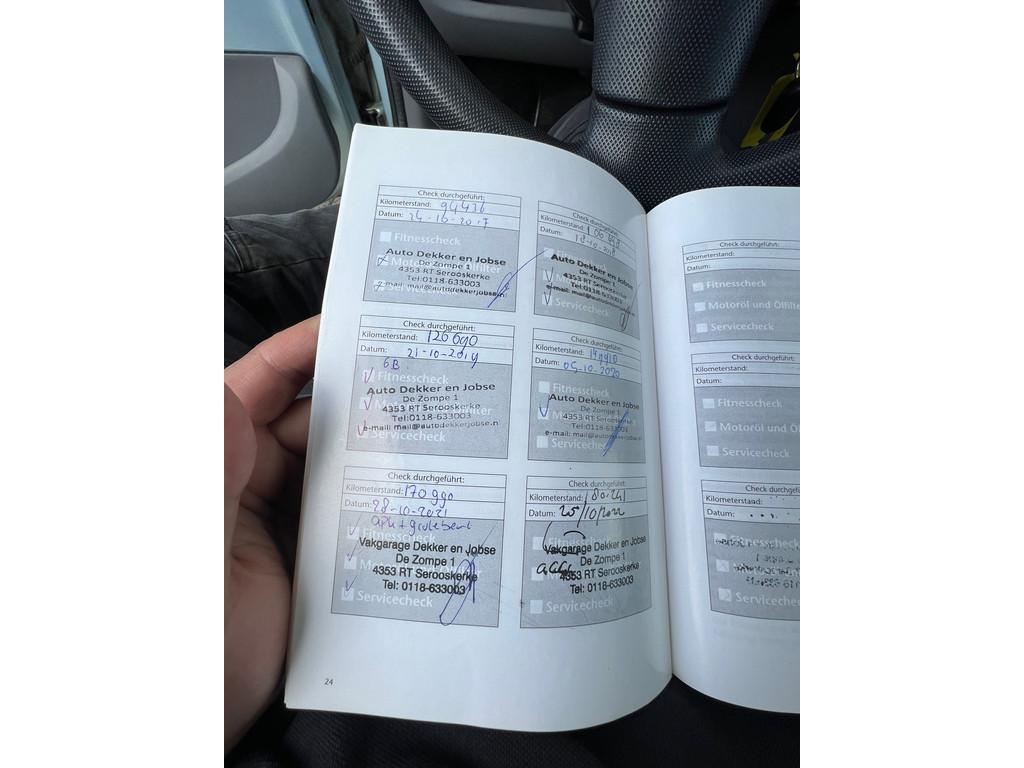 Check durchgeführt:
Kilometerstand: 94436
Datum: 24-10-2017
Fitnesscheck
Auto Dekker en Jobse
De Zompe 1
4353 RT Serooskerke
Tel:0118-633003
e-mail: mail@autodekkerjobse.nl
Check durchgeführt:
Kilometerstand:
Datum: 18-10-2018
Auto Dekker en Jobse
De Zompe 1
4353 RT Serooskerke
Tel:0118-633003
e-mail: mail@autodekkerjobse.n
Servicecheck
Check durchgeführt:
Kilometerstand: 126690
Datum: 21-10-2019
GB
Fitnesscheck
Auto Dekker en Jobse
De Zompe 1
4353 RT Serooskerke
Tel:0118-633003
e-mail: mail@autodekkerjobse.n
Servicecheck
Check durchgeführt:
Kilometerstand:
Datum: 05-10-2020
Fitnesscheck
Auto Dekker en Jobse
De Zompe 1
4353 RT Serooskerke
Tel:0118-633003
Servicecheck
Check durchgeführt:
Kilometerstand: 170990
Datum: 28-10-2021
apk + grote beurt
Fitnesscheck
Vakgarage Dekker en Jobse
De Zompe 1
4353 RT Serooskerke
Tel: 0118-633003
Servicecheck
Check durchgeführt:
Kilometerstand: 180.241
Datum: 25/10/2022
Fitnesscheck
Vakgarage Dekker en Jobse
De Zompe 1
4353 RT Serooskerke
Tel: 0118-633003
Servicecheck
24
Check durchgeführt:
Kilometerstand:
Datum:
Fitnesscheck
Motoröl und Ölfilte
Servicecheck
Check durchgeführt:
Kilometerstand:
Datum:
Fitnesscheck
Motoröl und Ölf
Servicecheck
Check durchgef
Kilometerstand:
Datum:
Servicecheck